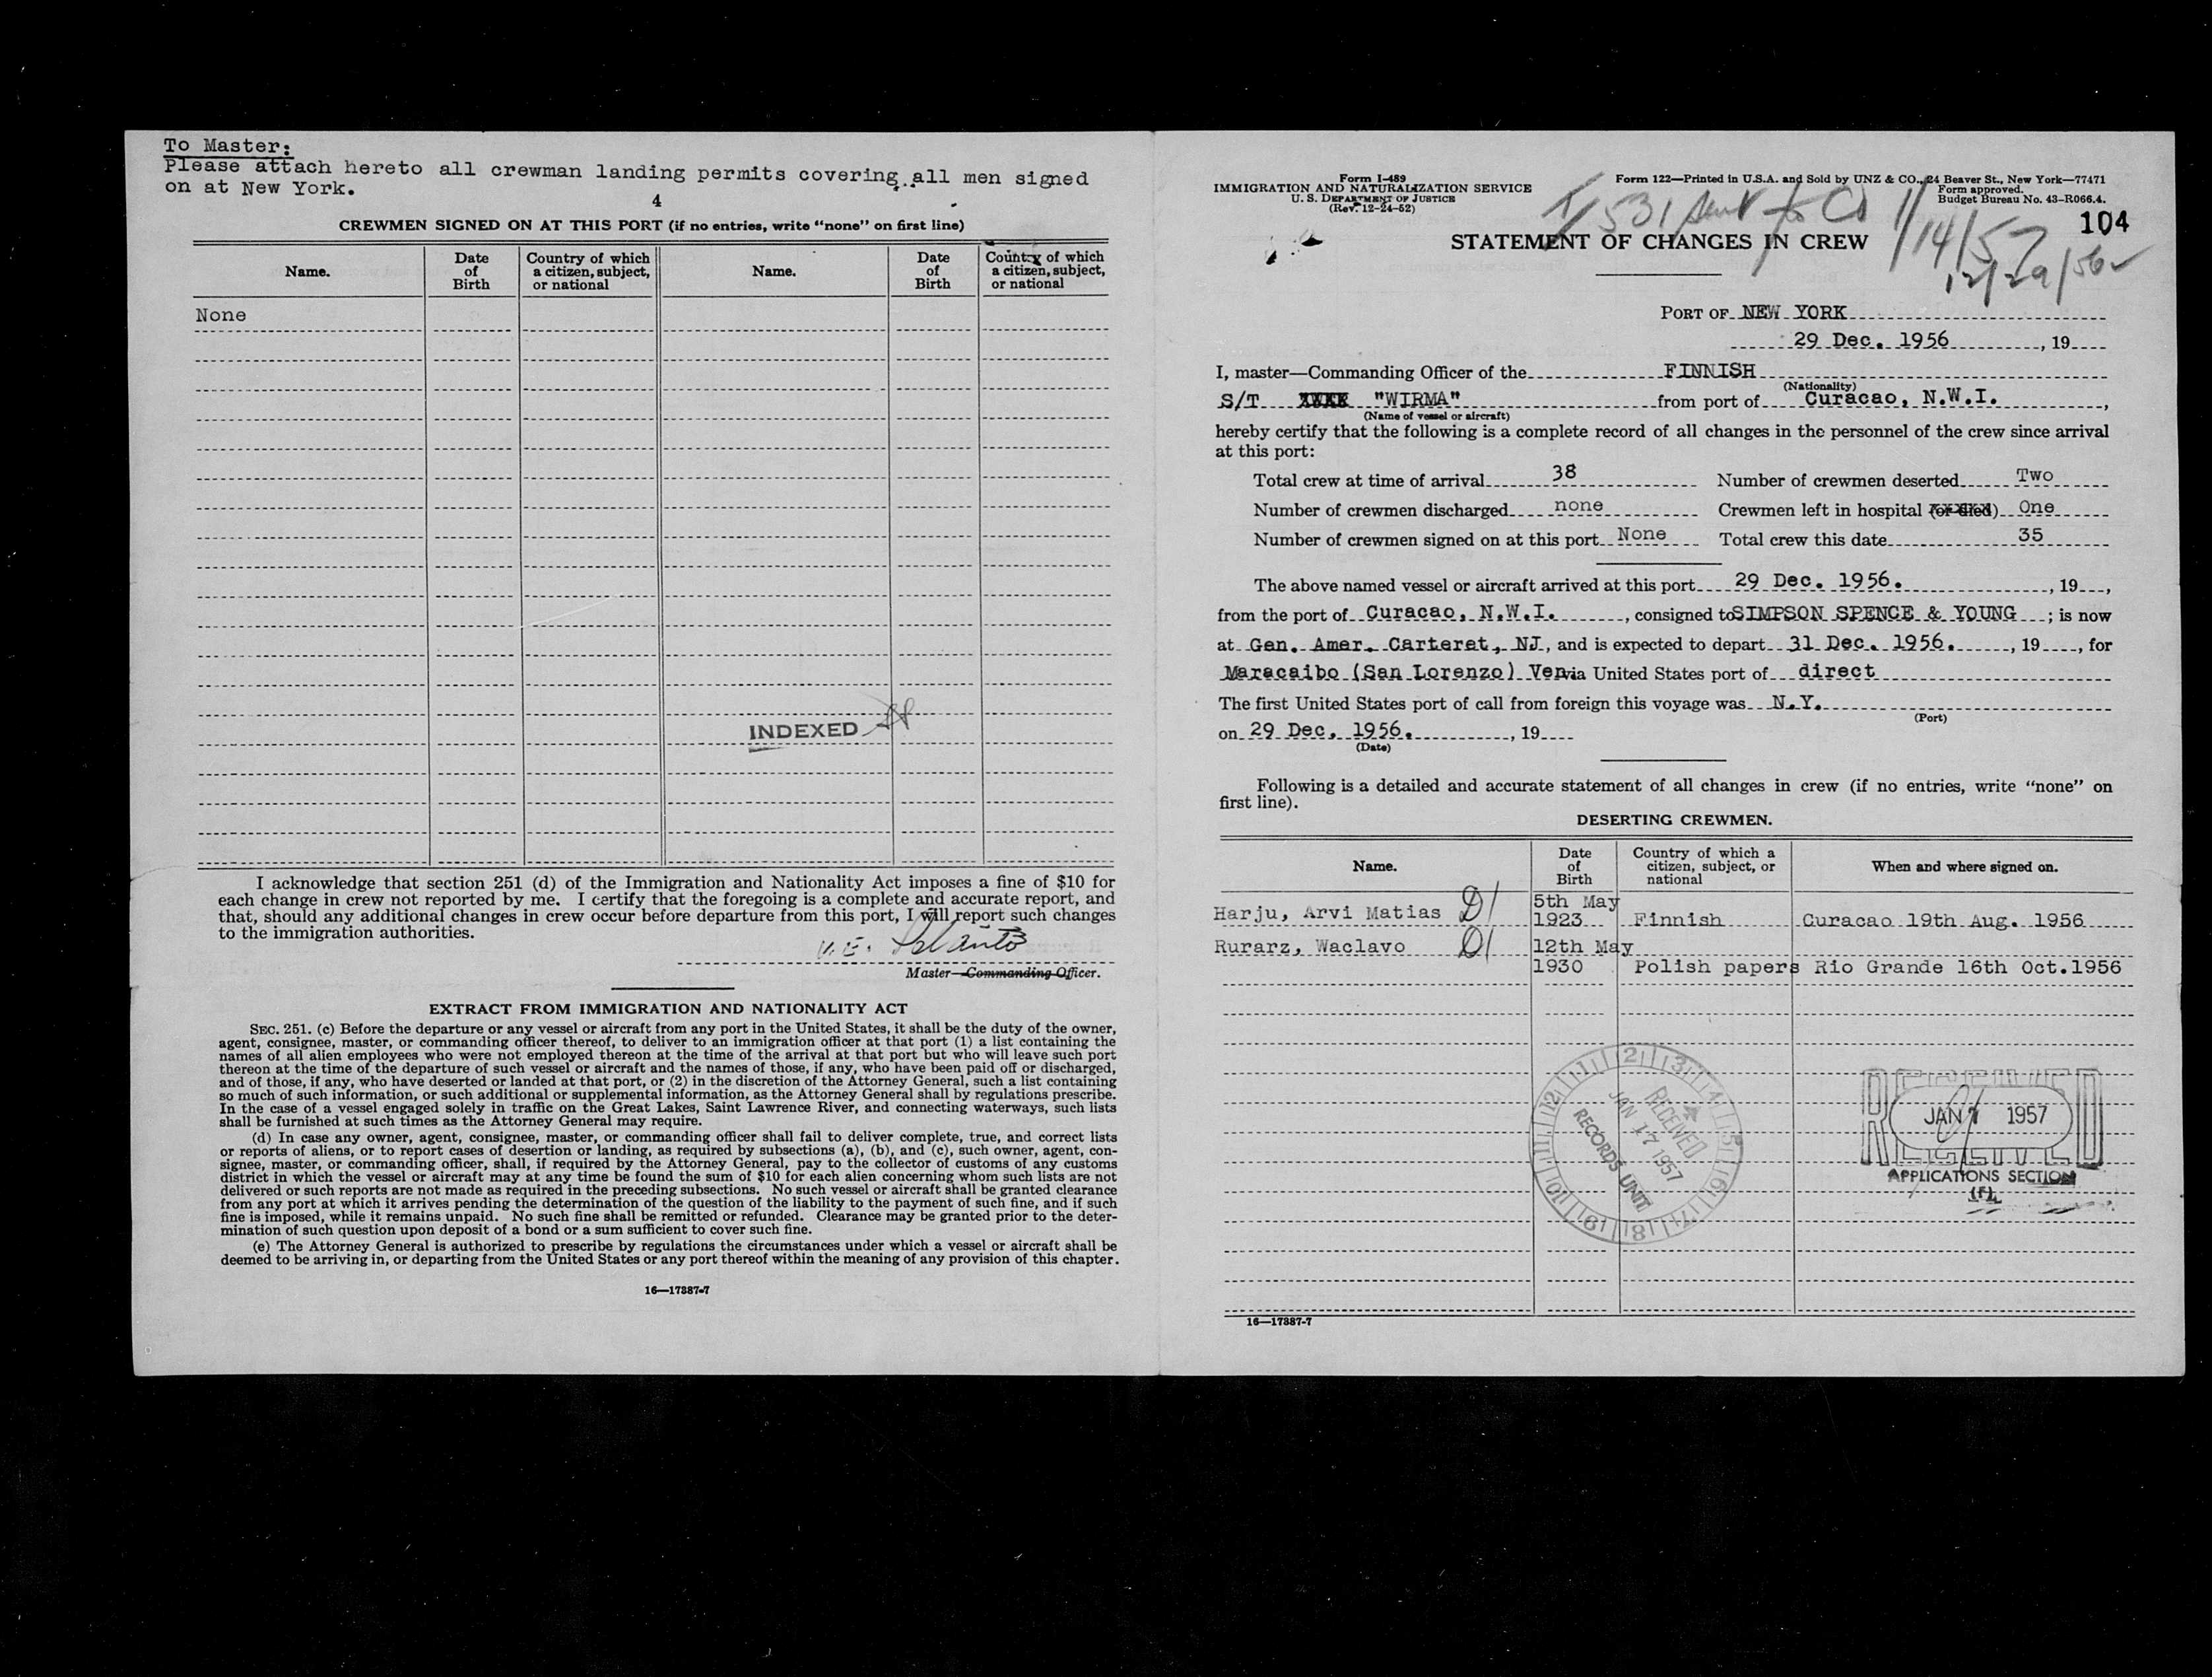 To Master:
Please attach hereto all crewman landing permits covering all men signed
on at New York.
4
CREWMEN SIGNED ON AT THIS PORT (if no entries, write “none” on first line)
Name. Date of Birth Country of which a citizen, subject, or national Name. Date of Birth Country of which a citizen, subject, or national
None
INDEXED
I acknowledge that section 251 (d) of the Immigration and Nationality Act imposes a fine of $10 for
each change in crew not reported by me. I certify that the foregoing is a complete and accurate report, and
that, should any additional changes in crew occur before departure from this port, I will report such changes
to the immigration authorities.
Master—Commanding Officer.
EXTRACT FROM IMMIGRATION AND NATIONALITY ACT
SEC. 251. (c) Before the departure or any vessel or aircraft from any port in the United States, it shall be the duty of the owner,
agent, consignee, master, or commanding officer thereof, to deliver to an immigration officer at that port (1) a list containing the
names of all alien employees who were not employed thereon at the time of the arrival at that port but who will leave such port
thereon at the time of the departure of such vessel or aircraft and the names of those, if any, who have been paid off or discharged,
and of those, if any, who have deserted or landed at that port, or (2) in the discretion of the Attorney General, such a list containing
so much of such information, or such additional or supplemental information, as the Attorney General shall by regulations prescribe.
In the case of a vessel engaged solely in traffic on the Great Lakes, Saint Lawrence River, and connecting waterways, such lists
shall be furnished at such times as the Attorney General may require.
(d) In case any owner, agent, consignee, master, or commanding officer shall fail to deliver complete, true, and correct lists
or reports of aliens, or to report cases of desertion or landing, as required by subsections (a), (b), and (c), such owner, agent, con-
signee, master, or commanding officer, shall, if required by the Attorney General, pay to the collector of customs of any customs
district in which the vessel or aircraft may at any time be found the sum of $10 for each alien concerning whom such lists are not
delivered or such reports are not made as required in the preceding subsections. No such vessel or aircraft shall be granted clearance
from any port at which it arrives pending the determination of the question of the liability to the payment of such fine, and if such
fine is imposed, while it remains unpaid. No such fine shall be remitted or refunded. Clearance may be granted prior to the deter-
mination of such question upon deposit of a bond or a sum sufficient to cover such fine.
(e) The Attorney General is authorized to prescribe by regulations the circumstances under which a vessel or aircraft shall be
deemed to be arriving in, or departing from the United States or any port thereof within the meaning of any provision of this chapter.
16—17887-7
Form I-489
IMMIGRATION AND NATURALIZATION SERVICE
U. S. DEPARTMENT OF JUSTICE
(Rev. 12-24-52)
Form 122—Printed in U.S.A. and Sold by UNZ & CO., 24 Beaver St., New York—77471
Form approved.
Budget Bureau No. 43-R066.4.
104
I/531 sent to CO 1/14/57
12/29/56
STATEMENT OF CHANGES IN CREW
PORT OF NEW YORK
29 Dec. 1956, 19
I, master—Commanding Officer of the FINNISH
(Nationality)
S/T "WIRMA" from port of Curacao, N.W.I.,
(Name of vessel or aircraft)
hereby certify that the following is a complete record of all changes in the personnel of the crew since arrival
at this port:
Total crew at time of arrival 38 Number of crewmen deserted Two
Number of crewmen discharged none Crewmen left in hospital (or died) One
Number of crewmen signed on at this port None Total crew this date 35
The above named vessel or aircraft arrived at this port 29 Dec. 1956., 19,
from the port of Curacao, N.W.I., consigned to SIMPSON SPENCE & YOUNG; is now
at Gen. Amer. Carteret, NJ, and is expected to depart 31 Dec. 1956., 19, for
Maracaibo (San Lorenzo) Ven via United States port of direct
The first United States port of call from foreign this voyage was N.Y.
(Port)
on 29 Dec. 1956., 19
(Date)
Following is a detailed and accurate statement of all changes in crew (if no entries, write “none” on
first line).
DESERTING CREWMEN.
Name. Date of Birth Country of which a citizen, subject, or national When and where signed on.
Harju, Arvi Matias D1 5th May 1923 Finnish Curacao 19th Aug. 1956
Rurarz, Waclavo D1 12th May 1930 Polish papers Rio Grande 16th Oct.1956
RECEIVED
JAN 17 1957
RECORDS UNIT
RECEIVED
JAN 7 1957
APPLICATIONS SECTION
16—17887-7